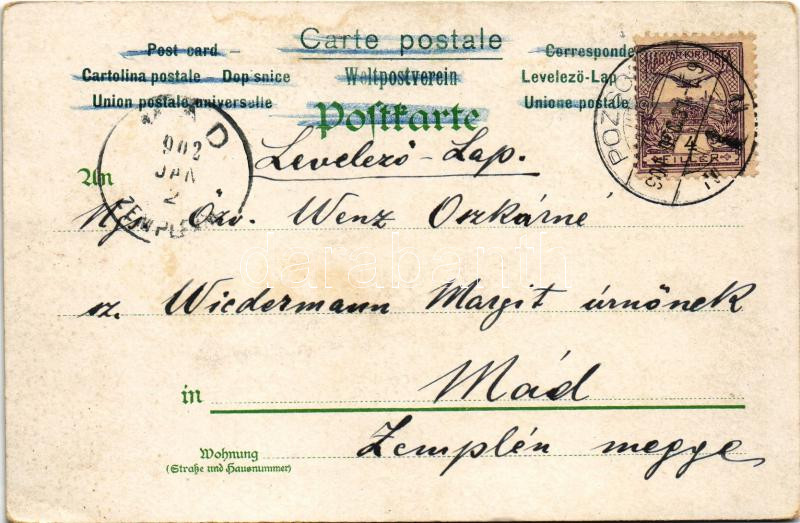 Carte postale
Post card
Corresponde
Cartolina postale Dopisnice
Weltpostverein
Levelező-Lap
Union postale universelle
Unione postale
Postkarte
MAGYAR KIR. POSTA
4
FILLÉR
POZSO
MÁD
902
JAN
2
ZEMPLÉN
Levelező-Lap.
An
Özv. Wenz Oszkárné
sz. Wiedermann Margit úrnőnek
in
Mád
Zemplén megye
Wohnung
(Straße und Hausnummer)
carabanth